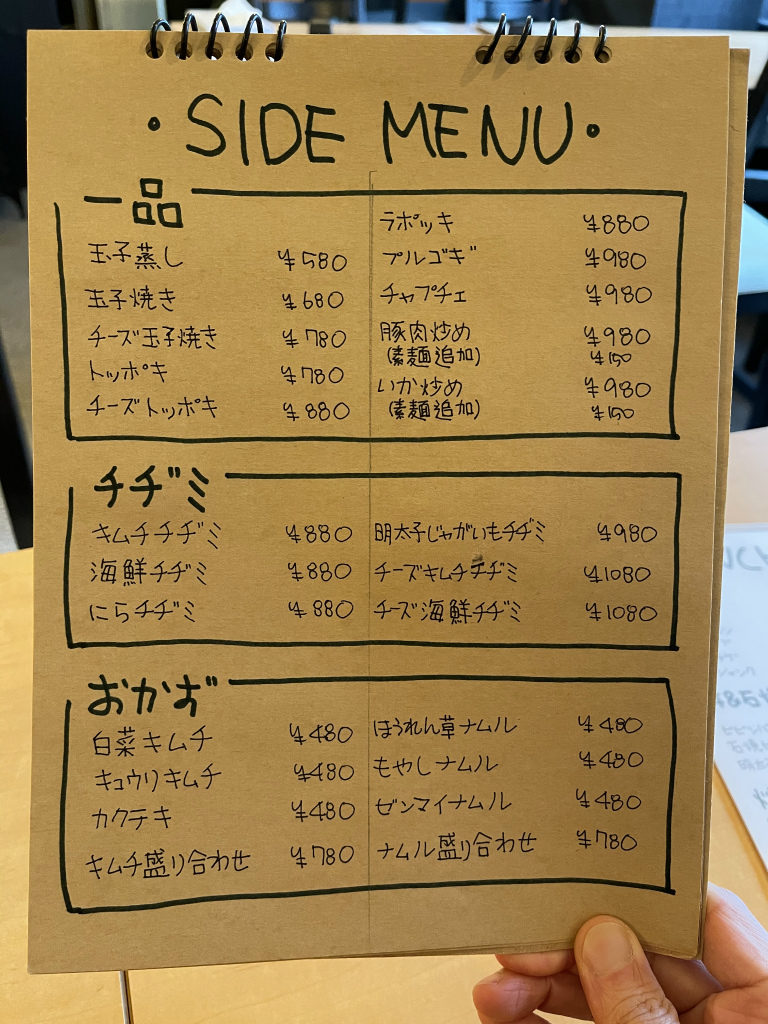 ・SIDE MENU・
一品
玉子蒸し ¥580
玉子焼き ¥680
チーズ玉子焼き ¥780
トッポキ ¥780
チーズトッポキ ¥880
ラポッキ ¥880
プルゴギ ¥980
チャプチェ ¥980
豚肉炒め ¥980
(素麺追加) ¥150
いか炒め ¥980
(素麺追加) ¥150
チヂミ
キムチチヂミ ¥880
海鮮チヂミ ¥880
にらチヂミ ¥880
明太子じゃがいもチヂミ ¥980
チーズキムチチヂミ ¥1080
チーズ海鮮チヂミ ¥1080
おかず
白菜キムチ ¥480
キュウリキムチ ¥480
カクテキ ¥480
キムチ盛り合わせ ¥780
ほうれん草ナムル ¥480
もやしナムル ¥480
ゼンマイナムル ¥480
ナムル盛り合わせ ¥780